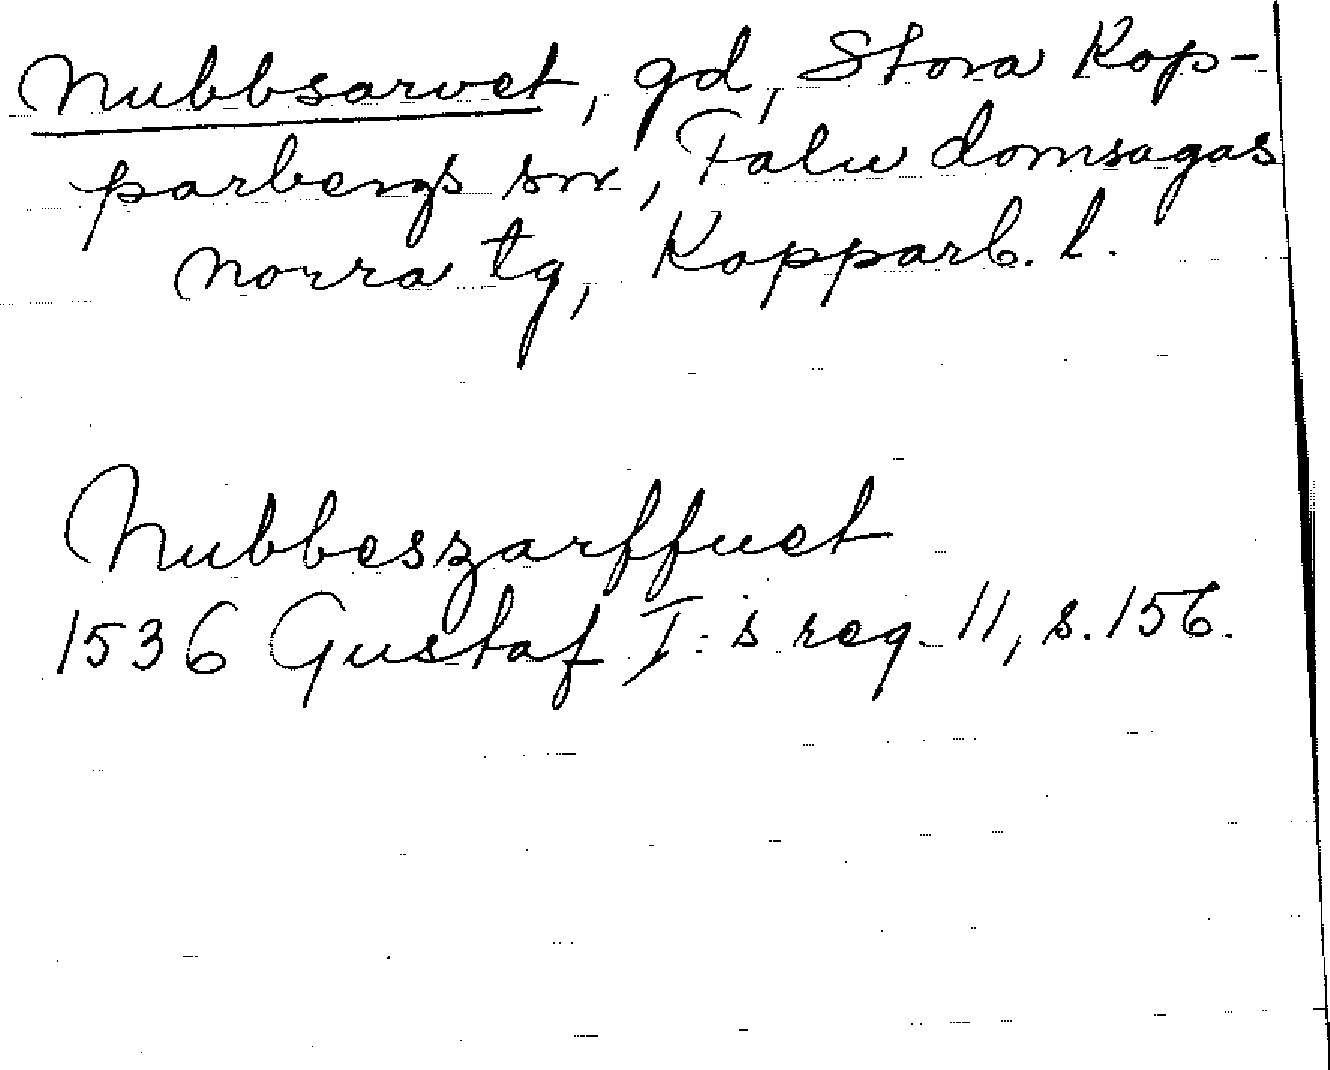 Nubbsarvet, gd, Stora Kop-
parbergs sn, Falu domsagas
norra tg, Kopparb. l.
Nubbeszarffuet
1536 Gustaf I:s reg. 11, s. 156.